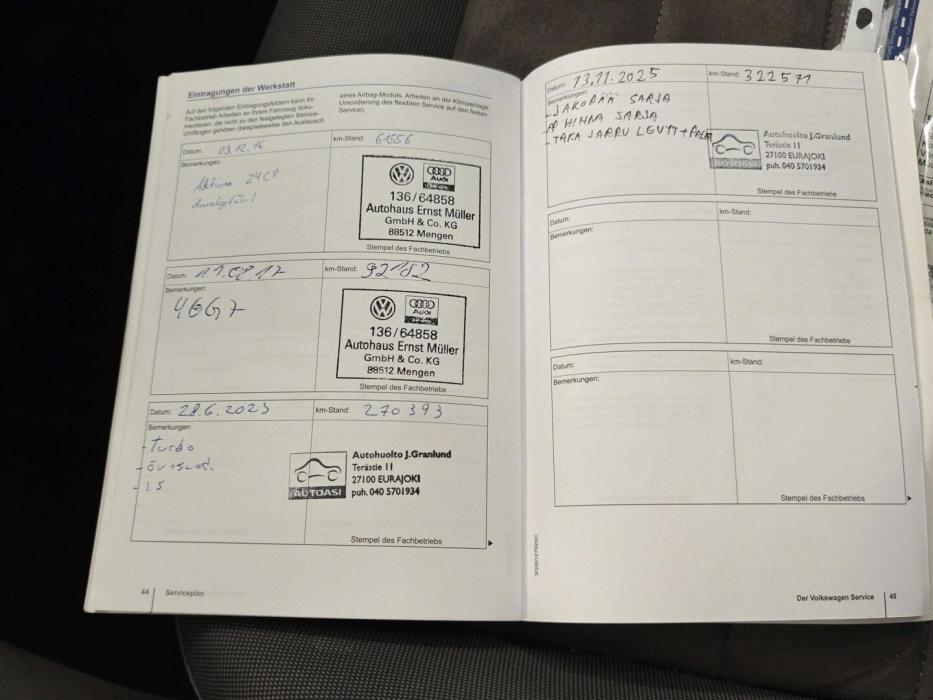 Eintragungen der Werkstatt
Auf den folgenden Eintragungsfeldern kann Ihr
Fachbetrieb Arbeiten an Ihrem Fahrzeug doku-
mentieren, die nicht zu den festgelegten Service-
Umfängen gehören (beispielsweise den Austausch
eines Airbag-Moduls, Arbeiten an der Klimaanlage,
Umcodierung des flexiblen Service auf den festen
Service).
Datum: 09.12.16 km-Stand: 61556
Bemerkungen:
Aktion 24C8
durchgeführt
Audi
136/64858
Autohaus Ernst Müller
GmbH & Co. KG
88512 Mengen
Stempel des Fachbetriebs
Datum: 11.08.17 km-Stand: 92182
Bemerkungen:
46G7
Audi
136/64858
Autohaus Ernst Müller
GmbH & Co. KG
88512 Mengen
Stempel des Fachbetriebs
Datum: 28.6.2023 km-Stand: 270393
Bemerkungen:
- Turbo
- öv+suod.
- LS
AUTOASI
Autohuolto J.Granlund
Terästie 11
27100 EURAJOKI
puh. 040 5701934
Stempel des Fachbetriebs
44 Serviceplan
Datum: 13.11.2025 km-Stand: 322571
Bemerkungen:
- JAKOPÄÄN SARJA
- AP HIHNA SARJA
- TAKA JARRU LEVYT + PALA
AUTOASI
Autohuolto J.Granlund
Terästie 11
27100 EURAJOKI
puh. 040 5701934
Stempel des Fachbetriebs
Datum: km-Stand:
Bemerkungen:
Stempel des Fachbetriebs
Datum: km-Stand:
Bemerkungen:
Stempel des Fachbetriebs
Der Volkswagen Service 45